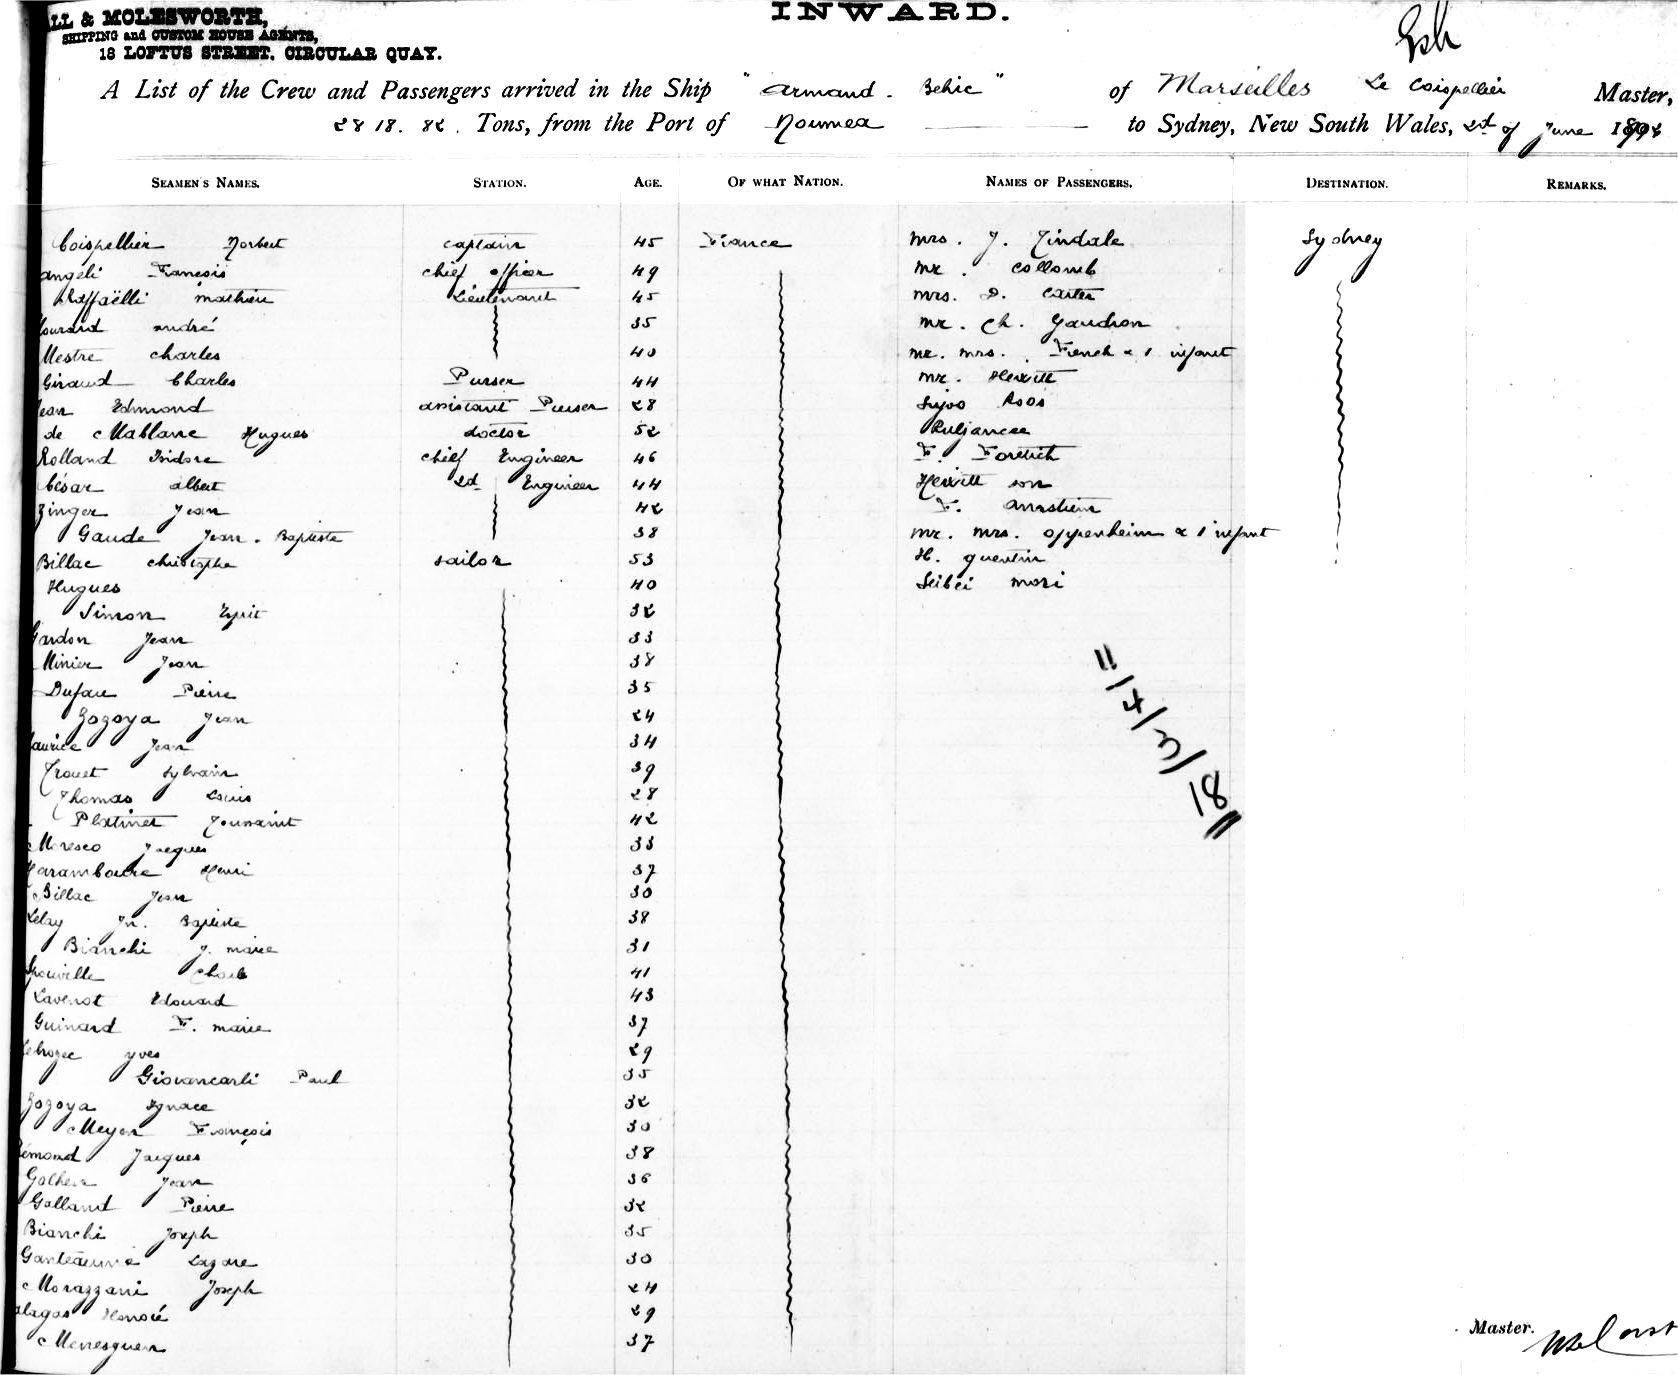 LL & MOLESWORTH,
SHIPPING and CUSTOM HOUSE AGENTS,
18 LOFTUS STREET, CIRCULAR QUAY.
INWARD.
A List of the Crew and Passengers arrived in the Ship "Armand. Behic" of Marseilles Le Coispellier Master,
2818. 82. Tons, from the Port of Noumea to Sydney, New South Wales, of June 189
SEAMEN'S NAMES. STATION. AGE. OF WHAT NATION. NAMES OF PASSENGERS. DESTINATION. REMARKS.
Coispellier Norbert captain 45 France Mrs. J. Tindale Sydney
angeli François chief officer 49 Mr. Collomb
Raffaëlli Mathieu Lieutenant 45 Mrs. D. Carter
andré 35 Mr. Ch. Gaudron
Mestre Charles 40 Mr. Mrs. French & 1 infant
Giraud Charles Purser 44 Mr. Hewitt
Jean Edmond assistant Purser 28 Roos
de Mablanc Hugues doctor 52
Rolland Isidore chief Engineer 46 F.
César albert 2d Engineer 44 Hewitt son
Zinger Jean 42 F.
Gaude Jean. Baptiste 38 Mr. Mrs. Oppenheim & 1 infant
Billac Christophe sailor 53 H. Quentin
Hugues 40 Seibei Mori
Simon Esprit 32
Gardon Jean 33
Minier Jean 38
Dufau Pierre 35
Zozoya Jean 24
aurice Jean 34
Trouet Sylvain 39
Thomas Louis 28
Platinet Toussaint 42
Moresco Jacques 33
Haramboure Henri 37
Billac Jean 30
Lelay Jn. Baptiste 38
Bianchi J. Marie 31
Charles 41
Lavenot Edouard 43
Guinard F. Marie 37
yves 29
Giovancarli Paul 35
Zozoya Ignace 32
Meyer François 30
émond Jacques 38
Jean 36
Galland Pierre 32
Bianchi Joseph 35
Ganteaume Lazare 30
Morazzani Joseph 24
alagas Honoré 29
Menesguen 37
11/4/3/18
Master.